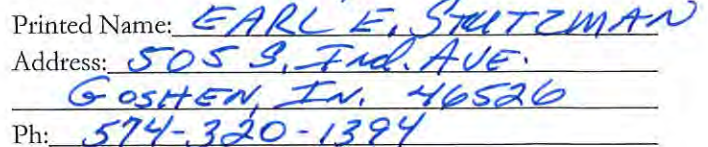 Printed Name: EARL E. STUTZMAN
Address: 505 S. Ind. AVE.
GOSHEN, IN. 46526
Ph: 574-320-1394